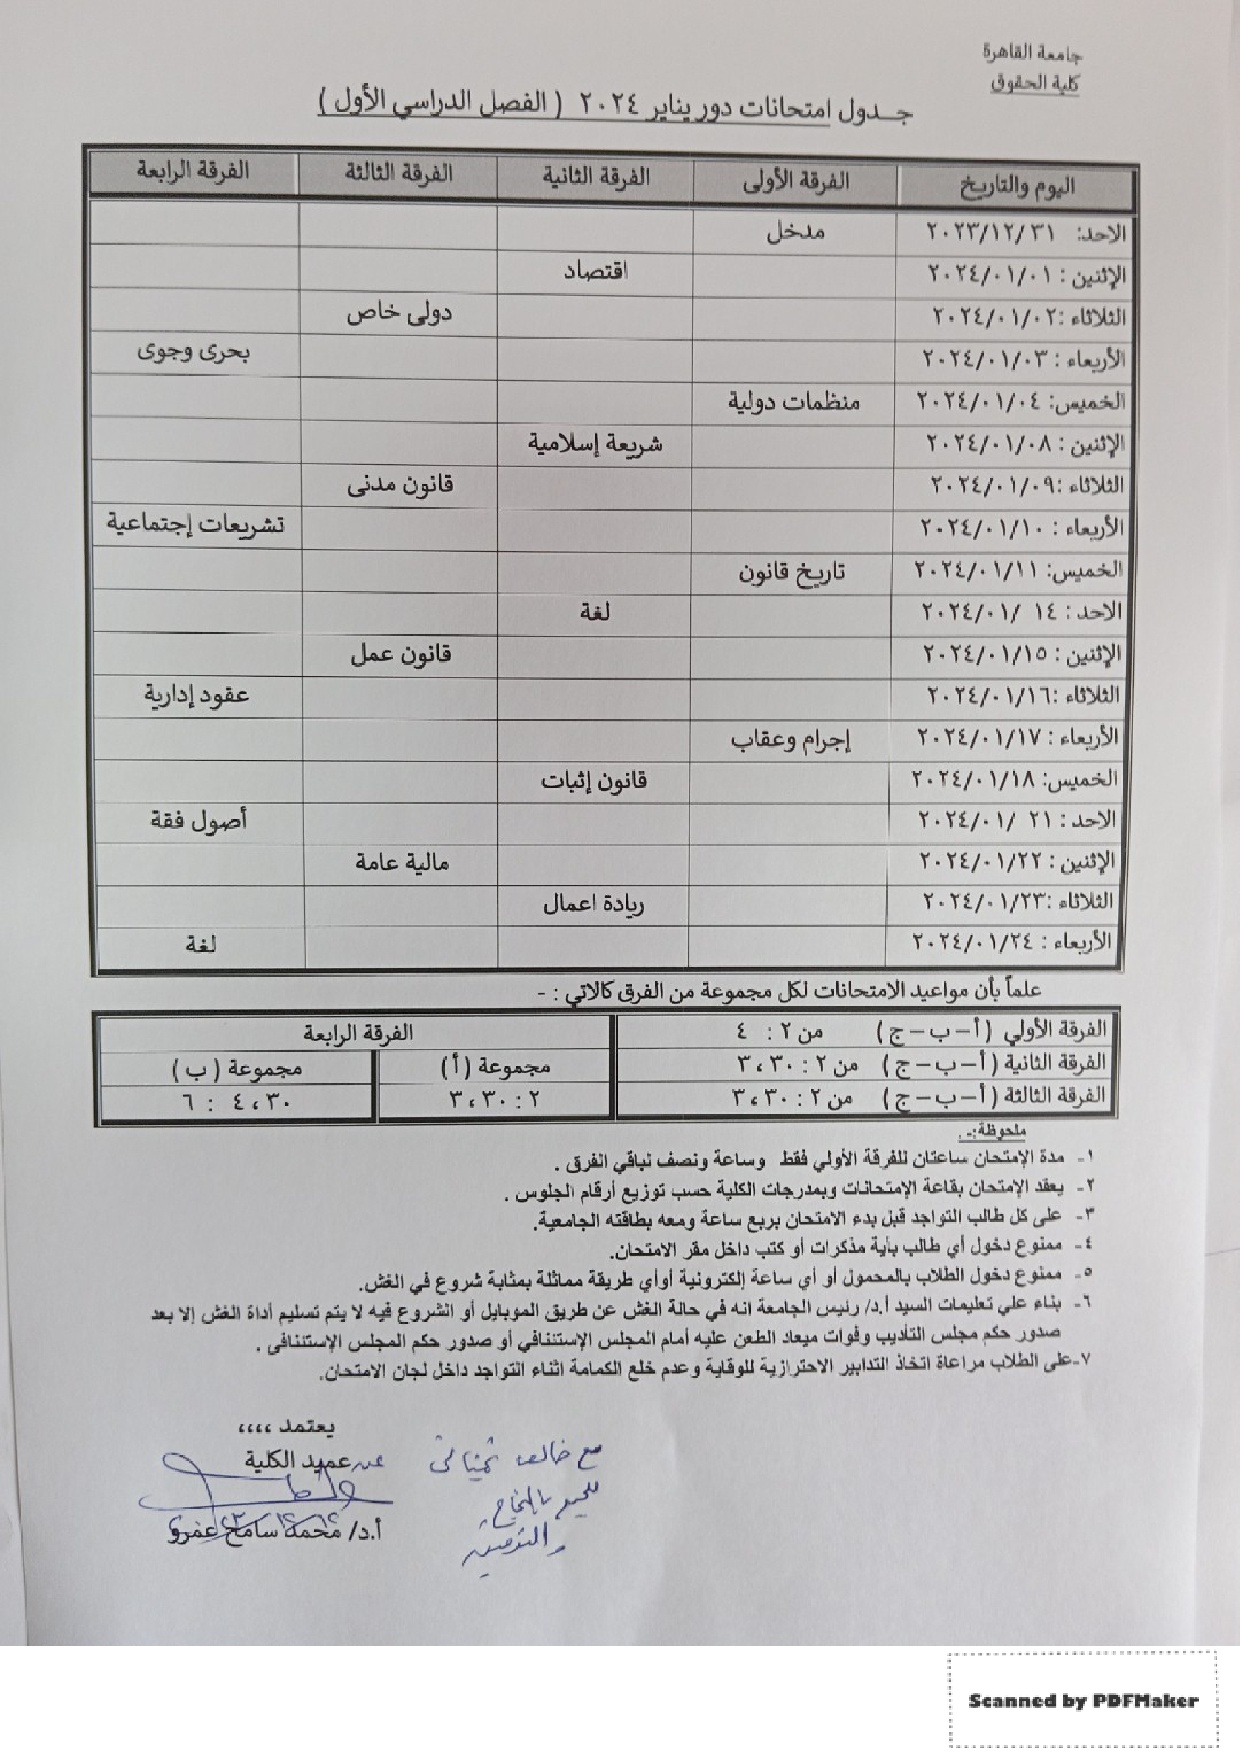 جامعة القاهرة
كلية الحقوق
جــدول امتحانات دور يناير ٢٠٢٤ ( الفصل الدراسي الأول )
اليوم والتاريخ الفرقة الأولى الفرقة الثانية الفرقة الثالثة الفرقة الرابعة
الاحد: ٢٠٢٣/١٢/٣١ مدخل
الإثنين : ٢٠٢٤/٠١/٠١ اقتصاد
الثلاثاء :٢٠٢٤/٠١/٠٢ دولى خاص
الأربعاء : ٢٠٢٤/٠١/٠٣ بحرى وجوى
الخميس: ٢٠٢٤/٠١/٠٤ منظمات دولية
الإثنين : ٢٠٢٤/٠١/٠٨ شريعة إسلامية
الثلاثاء :٢٠٢٤/٠١/٠٩ قانون مدنى
الأربعاء : ٢٠٢٤/٠١/١٠ تشريعات إجتماعية
الخميس: ٢٠٢٤/٠١/١١ تاريخ قانون
الاحد : ١٤ /٢٠٢٤/٠١ لغة
الإثنين : ٢٠٢٤/٠١/١٥ قانون عمل
الثلاثاء :٢٠٢٤/٠١/١٦ عقود إدارية
الأربعاء : ٢٠٢٤/٠١/١٧ إجرام وعقاب
الخميس: ٢٠٢٤/٠١/١٨ قانون إثبات
الاحد : ٢١ /٢٠٢٤/٠١ أصول فقة
الإثنين : ٢٠٢٤/٠١/٢٢ مالية عامة
الثلاثاء :٢٠٢٤/٠١/٢٣ ريادة اعمال
الأربعاء : ٢٠٢٤/٠١/٢٤ لغة
علماً بأن مواعيد الامتحانات لكل مجموعة من الفرق كالاتي : -
الفرقة الأولي (أ – ب – ج ) من ٢ : ٤ الفرقة الرابعة
الفرقة الثانية (أ – ب – ج ) من ٢ : ٣،٣٠ مجموعة (أ) مجموعة ( ب )
الفرقة الثالثة (أ – ب – ج ) من ٢ : ٣،٣٠ ٢ : ٣،٣٠ ٤،٣٠ : ٦
ملحوظة:- .
١- مدة الإمتحان ساعتان للفرقة الأولي فقط وساعة ونصف لباقي الفرق .
٢- يعقد الإمتحان بقاعة الإمتحانات وبمدرجات الكلية حسب توزيع أرقام الجلوس .
٣- على كل طالب التواجد قبل بدء الامتحان بربع ساعة ومعه بطاقته الجامعية.
٤- ممنوع دخول أي طالب بأية مذكرات أو كتب داخل مقر الامتحان.
٥- ممنوع دخول الطلاب بالمحمول أو أي ساعة إلكترونية أوأي طريقة مماثلة بمثابة شروع في الغش.
٦- بناء علي تعليمات السيد أ.د/ رئيس الجامعة انه في حالة الغش عن طريق الموبايل أو الشروع فيه لا يتم تسليم أداة الغش إلا بعد
صدور حكم مجلس التأديب وفوات ميعاد الطعن عليه أمام المجلس الإستئنافي أو صدور حكم المجلس الإستئنافى .
٧-على الطلاب مراعاة اتخاذ التدابير الاحترازية للوقاية وعدم خلع الكمامة اثناء التواجد داخل لجان الامتحان.
يعتمد ،،،،
عن عميد الكلية
أ.د/ محمد سامح عمرو
مع خالص تمنياتى
للجميع بالنجاح
والتوفيق
Scanned by PDFMaker